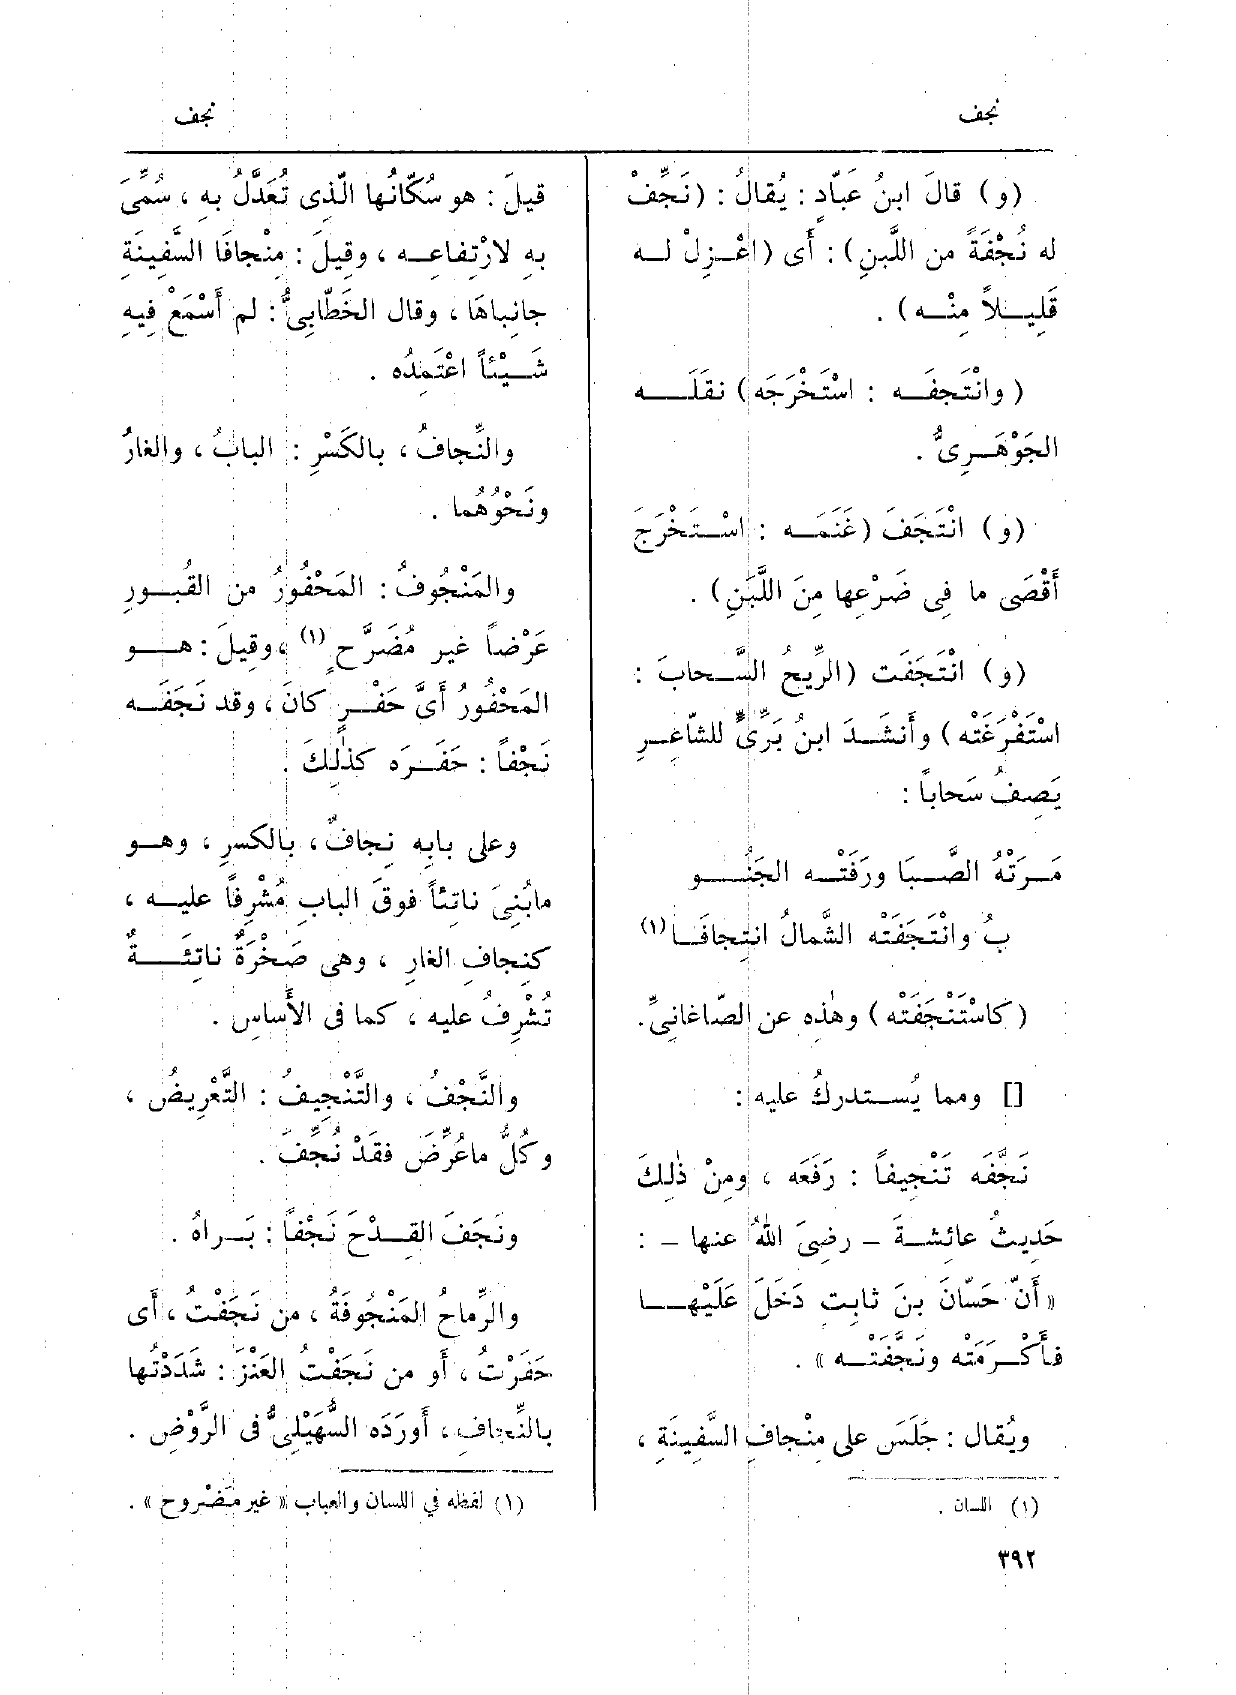 نجف
نجف
(و) قالَ ابنُ عَبّادٍ : يُقالُ : (نَجِّفْ
له نُجْفَةً من اللَّبنِ) : أَى (اعْـزِلْ لـه
قَلِيـلاً مِنْـه) .
(وانْتَجفَـه : اسْتَخْرَجَه) نقَلَـه
الجَوْهَـرِىُّ .
(و) انْتَجَفَ (غَنَمَـه : اسْـتَخْرَجَ
أَقْصَى ما فِى ضَرْعِها مِنَ اللَّبَنِ) .
(و) انْتَجَفَت (الرِّيحُ السَّـحابَ :
اسْتَفْرَغَتْه) وأَنشَـدَ ابنُ بَرِّىٍّ للشّاعِـرِ
يَصِفُ سَحاباً :
مَـرَتْهُ الصَّـبَا ورَفَتْـه الجَنُـو
بُ وانْتَجَفَتْه الشَّمالُ انتِجافَـا (١)
(كاسْتَنْجَفَتْه) وهٰذِه عن الصّاغانِىِّ.
[] ومما يُسـتدركُ عليه :
نَجَّفَه تَنْجِيفاً : رَفَعَه ، ومِنْ ذٰلِكَ
حَدِيثُ عائِشـةَ – رضِىَ اللهُ عنها – :
« أَنّ حَسّانَ بنَ ثابِتٍ دَخَلَ عَلَيْهـا
فأَكْـرَمَتْه ونَجَّفَتْـه » .
ويُقال : جَلَسَ على مِنْجافِ السَّفِينَةِ ،
(١) اللسان .
قيلَ : هو سُكّانُها الّذِى تُعَدَّلُ به ، سُمِّىَ
بهِ لارْتِفاعِـه ، وقِيلَ : مِنْجافَا السَّفِينَةِ
جانِباهَا ، وقال الخَطّابِىُّ : لم أَسْمَعْ فِيهِ
شَـيْئاً اعْتَمِدُه .
والنِّجافُ ، بالكَسْرِ : البابُ ، والغارُ
ونَحْوُهُما .
والمَنْجُوفُ : المَحْفُورُ من القُبـورِ
عَرْضاً غير مُضَرَّحٍ (١) ، وقِيلَ : هـو
المَحْفُورُ أَىَّ حَفْـرٍ كانَ ، وقد نَجَفَـه
نَجْفاً : حَفَـرَه كذٰلِكَ .
وعلى بابِه نِجافٌ ، بالكسرِ ، وهـو
مابُنِىَ ناتِئاً فوقَ البابِ مُشْرِفاً عليـه ،
كنِجافِ الغارِ ، وهى صَخْرَةٌ ناتِئَـةٌ
تُشْرِفُ عليه ، كما فى الأَساسِ .
والنَّجْفُ ، والتَّنْجِيفُ : التَّعْرِيضُ ،
وكُلُّ ماعُرِّضَ فقَدْ نُجِّفَ .
ونَجَفَ القِـدْحَ نَجْفاً : بَـراهُ .
والرِّماحُ المَنْجُوفَةُ ، من نَجَفْتُ ، أَى
حَفَرْتُ ، أَو من نَجَفْتُ العَنْزَ : شَدَدْتُها
بالنِّجافِ ، أَورَدَه السُّهَيْلِىُّ فى الرَّوْضِ .
(١) لفظه في اللسان والعباب « غير مَضْروح » .
٣٩٢